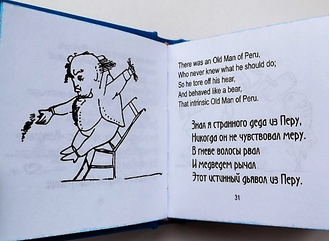 There was an Old Man of Peru,
Who never knew what he should do;
So he tore off his hear,
And behaved like a bear,
That intrinsic Old Man of Peru.
Знал я странного деда из Перу,
Никогда он не чувствовал меру.
В гневе волосы рвал
И медведем рычал
Этот истинный дьявол из Перу.
31